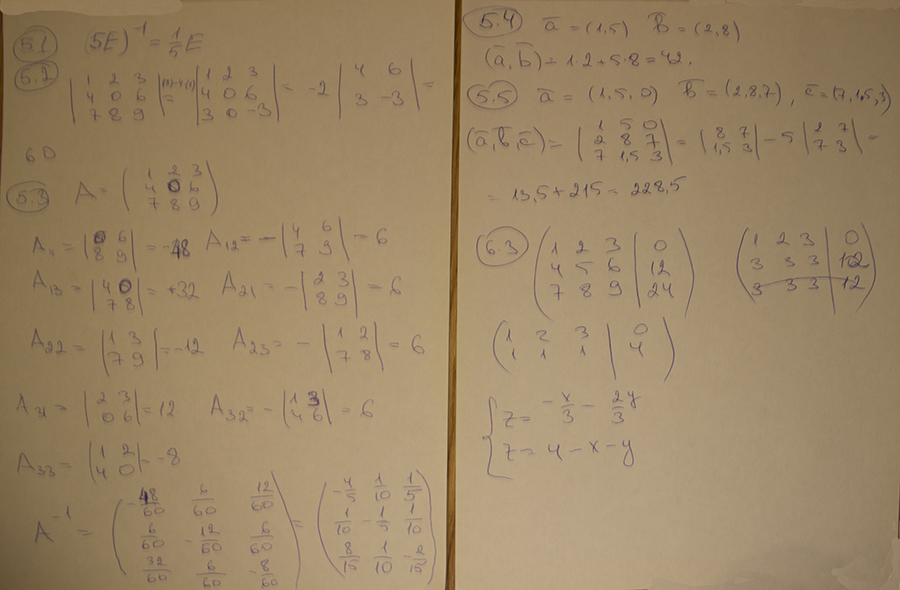 5.1 (5E)^-1 = 1/5 E
5.2 |1 2 3; 4 0 6; 7 8 9| (3)-4(1) = |1 2 3; 4 0 6; 3 0 -3| = -2 |4 6; 3 -3| =
60
5.3 A = (1 2 3; 4 0 6; 7 8 9)
A₁₁ = |0 6; 8 9| = -48 A₁₂ = -|4 6; 7 9| = 6
A₁₃ = |4 0; 7 8| = +32 A₂₁ = -|2 3; 8 9| = 6
A₂₂ = |1 3; 7 9| = -12 A₂₃ = -|1 2; 7 8| = 6
A₃₁ = |2 3; 0 6| = 12 A₃₂ = -|1 3; 4 6| = 6
A₃₃ = |1 2; 4 0| = -8
A^-1 = (-48/60 6/60 12/60; 6/60 -12/60 6/60; 32/60 6/60 -8/60) = (-4/5 1/10 1/5; 1/10 -1/5 1/10; 8/15 1/10 -2/15)
5.4 a̅ = (1,5) b̅ = (2,8)
(a̅,b̅) = 1·2+5·8 = 42.
5.5 a̅ = (1,5,0) b̅ = (2,8,7), c̅ = (7,1,5,3)
(a̅,b̅,c̅) = |1 5 0; 2 8 7; 7 1,5 3| = |8 7; 1,5 3| - 5 |2 7; 7 3| =
= 13,5 + 215 = 228,5
6.3 (1 2 3 | 0; 4 5 6 | 12; 7 8 9 | 24) (1 2 3 | 0; 3 3 3 | 12; 3 3 3 | 12)
(1 2 3 | 0; 1 1 1 | 4)
{ z = -x/3 - 2y/3
z = 4 - x - y